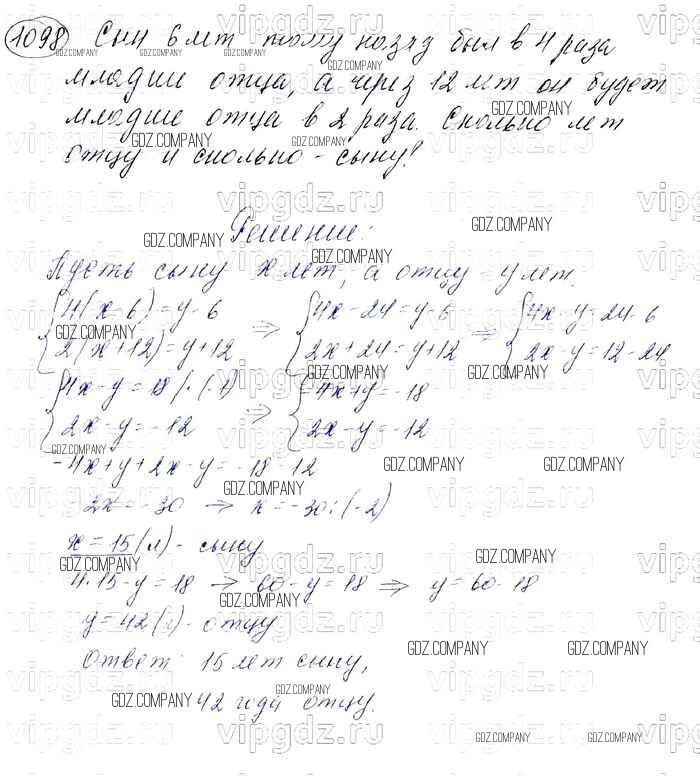 1098 Сын 6 лет тому назад был в 4 раза
младше отца, а через 12 лет он будет
младше отца в 2 раза. Сколько лет
отцу и сколько - сыну?
Решение:
Пусть сыну x лет, а отцу - y лет.
{4(x-6)=y-6 {4x-24=y-6 {4x-y=24-6
2(x+12)=y+12 => 2x+24=y+12 => 2x-y=12-24
{4x-y=18 |·(-1) {-4x+y=-18
2x-y=-12 => 2x-y=-12
-4x+y+2x-y=-18-12
-2x=-30 -> x=-30:(-2)
x=15(л)- сыну
4·15-y=18 -> 60-y=18 => y=60-18
y=42(г)- отцу
Ответ: 15 лет сыну,
42 года отцу.